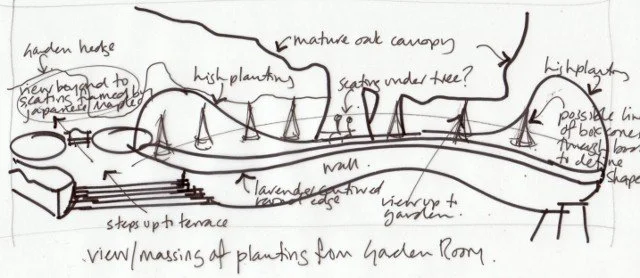 Garden hedge
mature oak canopy
high planting
view beyond to
seating framed by
Japanese maples
high planting
seating under tree?
possible line
of box cones
through border
to define
shape
wall
lavender continued
edge
view up to
garden
steps up to terrace
view/massing of planting from Garden Room.